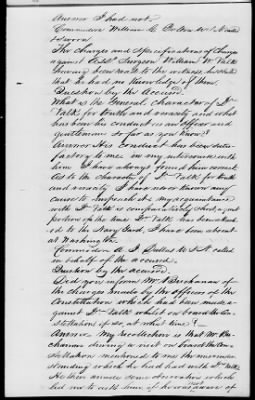 Answer I had not.
Commander William C. Bolton U.S.N. called
& sworn
The charges and specifications of charges
against Asst Surgeon William W. Valk
having been read to the witness he states
that he had no knowledge of them.
Question by the Accused.
What is the General character of Dr
Valk, for truth and veracity and what
has been his conduct as an officer and
gentleman so far as you know?
Answer His conduct has been satis-
factory to me in my intercourse with
him I have always found him such.
As to the character of Dr Valk for truth
and veracity I have never known any
cause to impeach it, my acquaintance
with Dr Valk is comparatively short a great
portion of the time Dr Valk has been attach-
ed to the Navy Yard, I have been absent
at Washington
Commodore A. J. Dallas U.S.N. called
in behalf of the accused.
Question by the accused.
Did you inform Mr Buchanan of
the charges made by the officers of the
Constellation which had been made a-
gainst Dr Valk whilst on board the Con-
stellation, if so, at what time?
Answer My recollection is that Mr Bu-
chanan during a visit on board the Con-
stellation mentioned to me the misunder-
standing which he had had with Dr Valk
He then made some observation which
led me to ask him if he was aware of